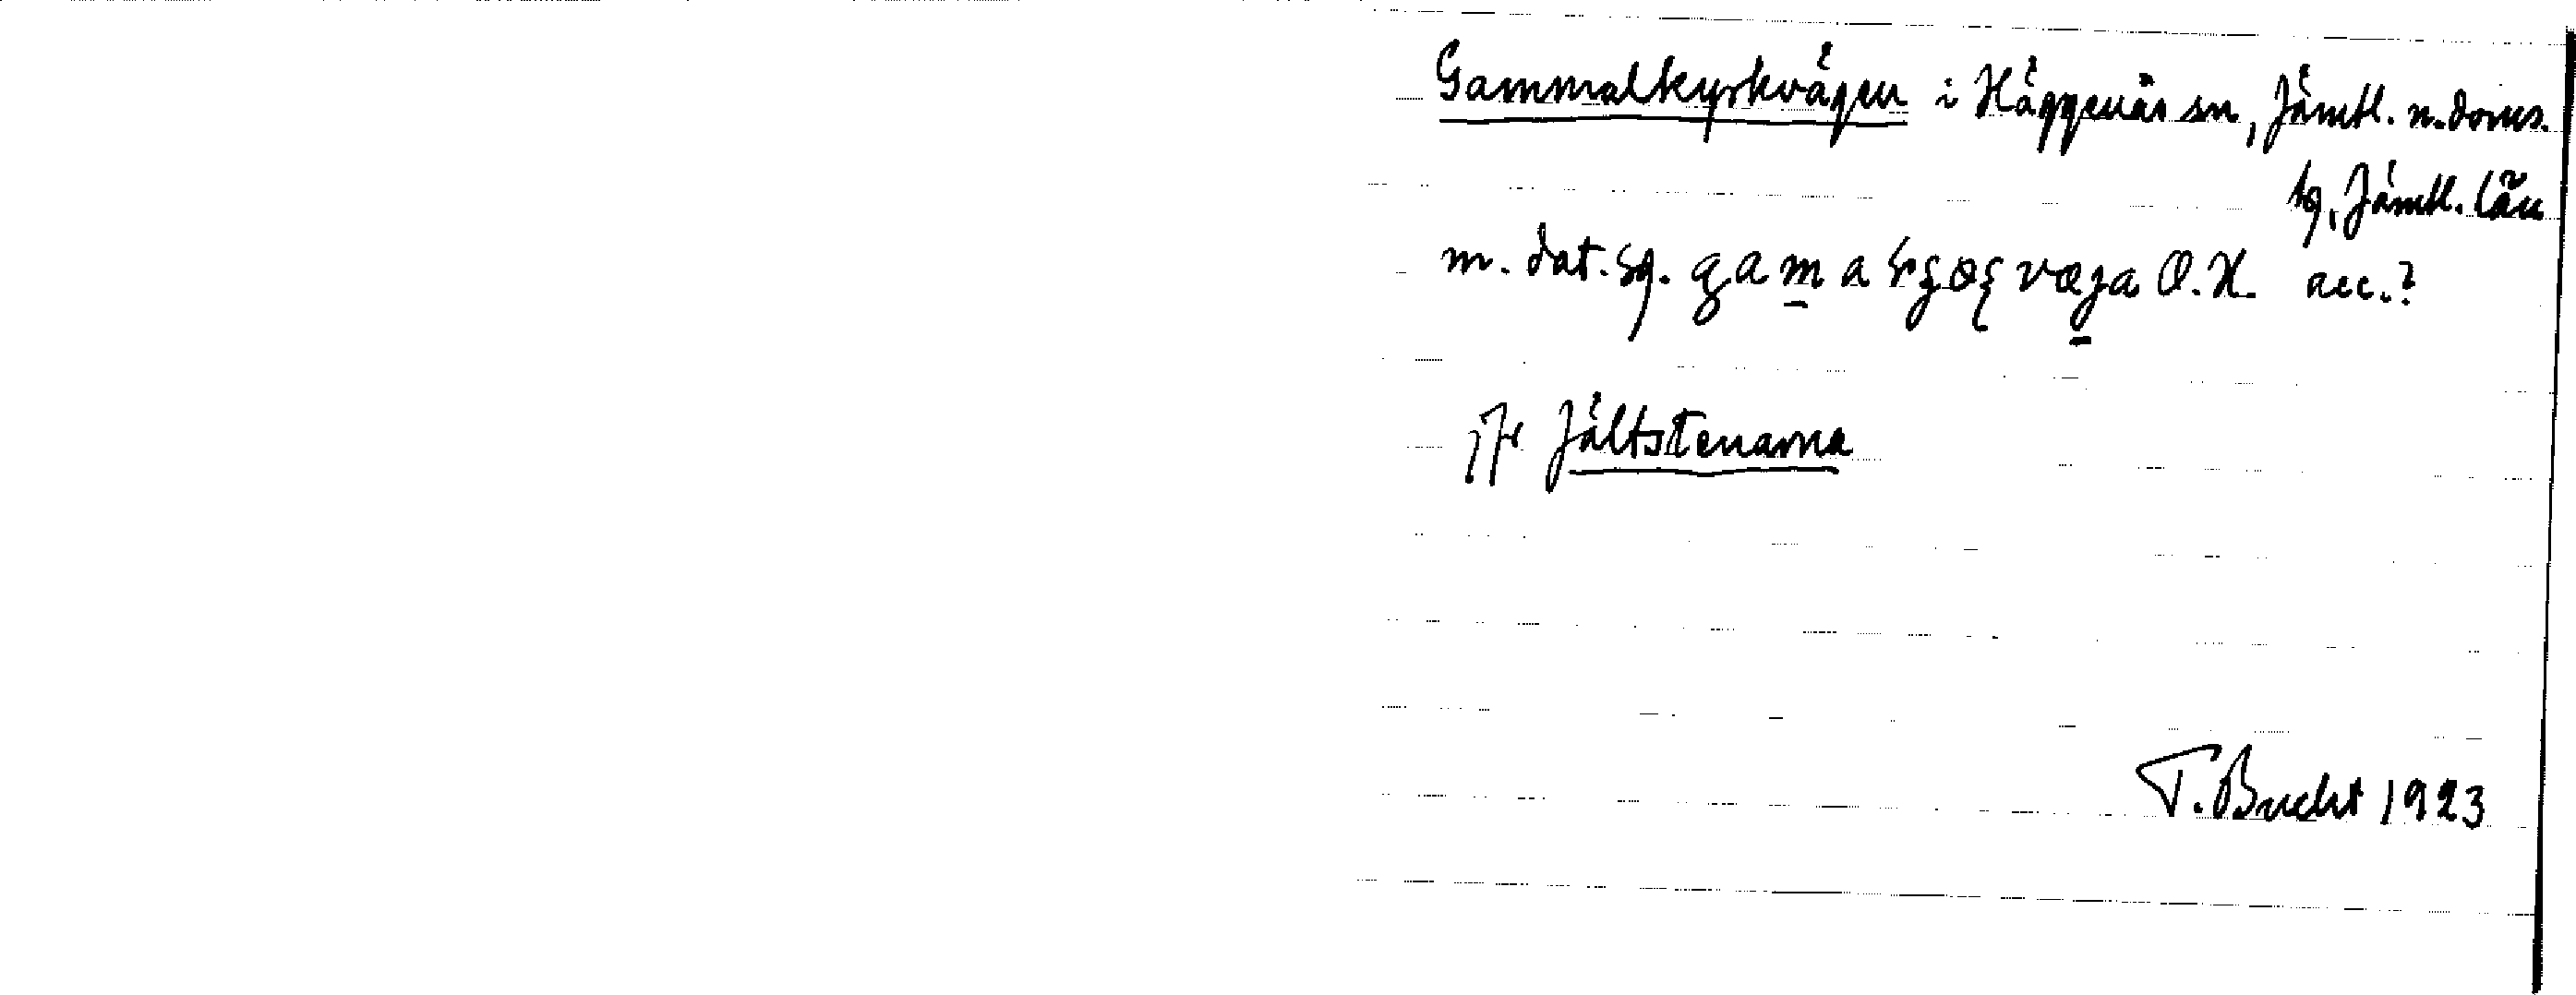 Gammalkyrkvägen i Häggenås sn, Jämtl. n. doms.
tg, Jämtl. län
m. dat. sg. O.H. acc.?
jfr Jältstenarna
T. Bucht 1923